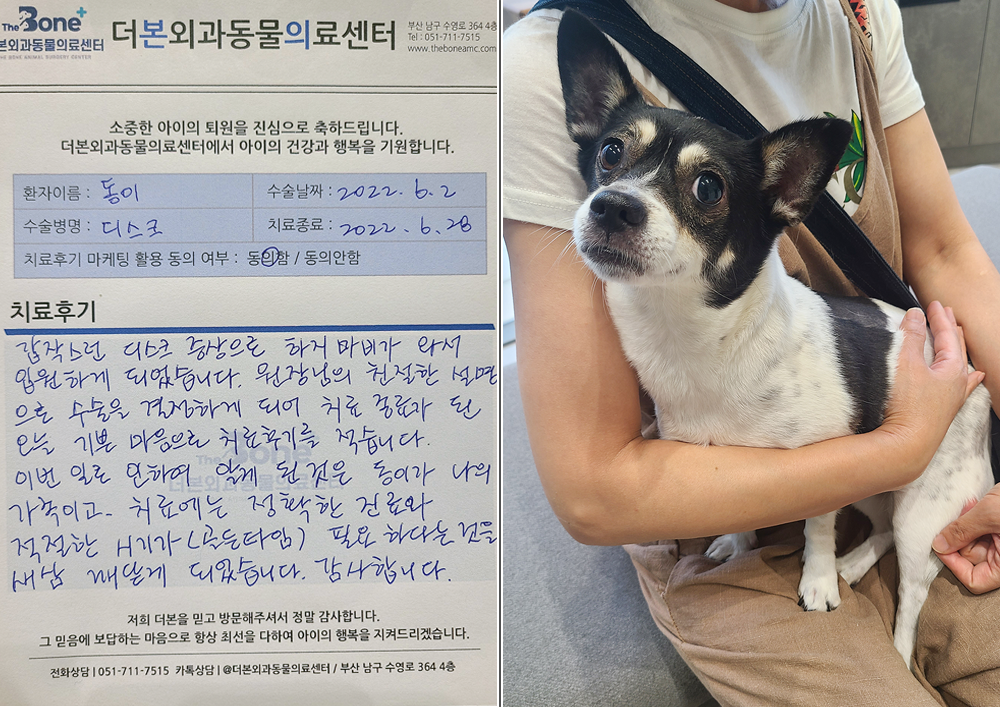 The Bone+
본외과동물의료센터
THE BONE ANIMAL SURGERY CENTER
더본외과동물의료센터
부산 남구 수영로 364 4층
Tel : 051-711-7515
www.theboneamc.com
소중한 아이의 퇴원을 진심으로 축하드립니다.
더본외과동물의료센터에서 아이의 건강과 행복을 기원합니다.
환자이름 : 동이
수술날짜 : 2022. 6. 2
수술병명 : 디스크
치료종료 : 2022. 6. 28
치료후기 마케팅 활용 동의 여부 : 동의함 / 동의안함
치료후기
갑작스런 디스크 증상으로 하지마비가 와서
입원하게 되었습니다. 원장님의 친절한 설명
으로 수술을 결정하게 되어 치료 종료가 된
오늘 기쁜 마음으로 치료후기를 적습니다.
이번 일로 인하여 알게 된 것은 동이가 나의
가족이고. 치료에는 정확한 진료와
적절한 시기가 (골든타임) 필요하다는 것을
새삼 깨닫게 되었습니다. 감사합니다.
The Bone
더본외과동물의료센터
저희 더본을 믿고 방문해주셔서 정말 감사합니다.
그 믿음에 보답하는 마음으로 항상 최선을 다하여 아이의 행복을 지켜드리겠습니다.
전화상담 | 051-711-7515 카톡상담 | @더본외과동물의료센터 / 부산 남구 수영로 364 4층